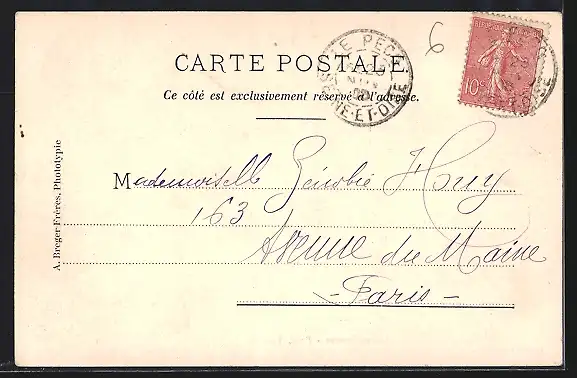 CARTE POSTALE
Ce côté est exclusivement réservé à l'adresse.
LE PECQ
SEINE-ET-OISE
6
10c
Mademoiselle Zénobie Huy
163
Avenue du Maine
- Paris -
A. Breger Frères, Phototypie